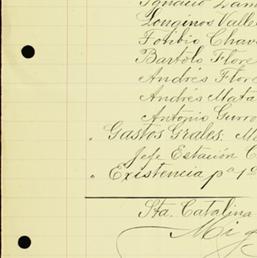 Ignacio Zam
Longinos Valles
Fotibio Chav
Bartolo Flore
Andrés Flore
Andrés Mata
Antonio Gurro
Gastos Grales. M
Jefe Estación C
Existencia pa 1º
Sta. Catalina
Mig